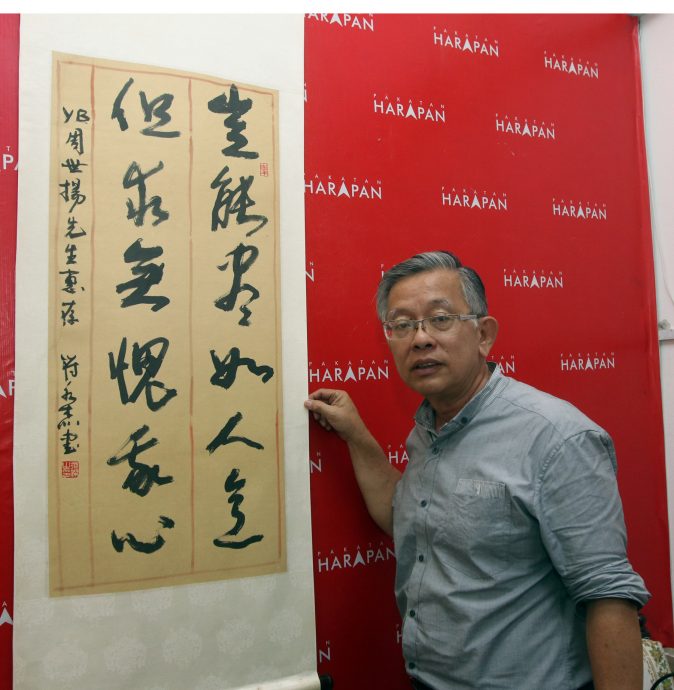 豈能盡如人意
但求無愧我心
YB周世揚先生惠存 符
書
HARAPAN
PAKATAN
HARAPAN
PAKATAN
HARAPAN
PAKATAN
HARAPAN
PAKATAN
HARAPAN
PAKATAN
HARAPAN
PAKATAN
HARAPAN
PAKATAN
HARAPAN
PAKATAN
HARAPAN
PAKATAN
HARAPAN
PAKATAN
HARAPAN
PAKATAN
HARAPAN